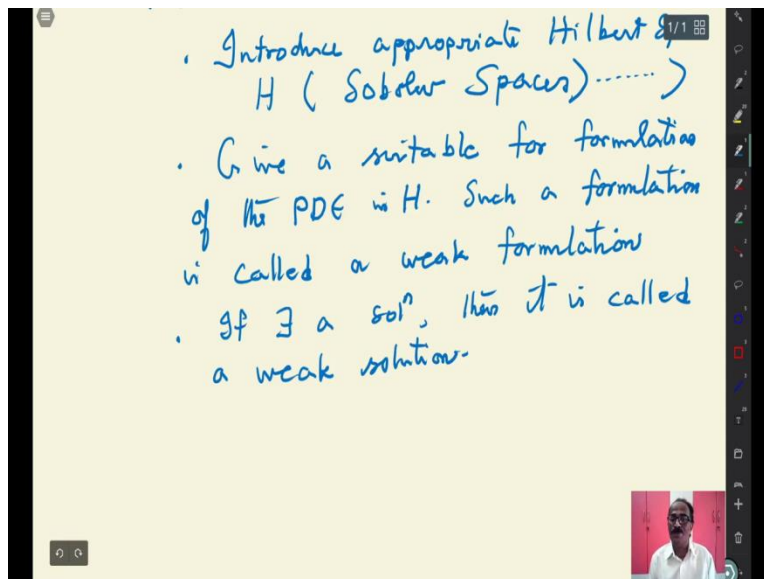 1/1
. Introduce appropriate Hilbert
H ( Sobolev Spaces) ....... )
. Give a suitable for formulation
of the PDE in H. Such a formulation
is called a weak formulation
. If ∃ a solⁿ, then it is called
a weak solution.